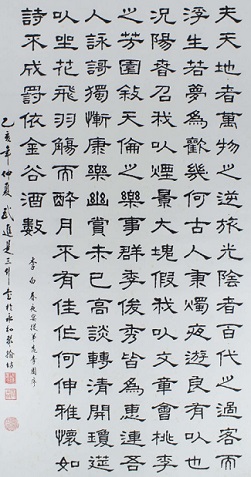 夫天地者萬物之逆旅光陰者百代之過客而
浮生若夢為歡幾何古人秉燭夜遊良有以也
況陽春召我以煙景大塊假我以文章會桃李
之芳園敘天倫之樂事群季俊秀皆為惠連吾
人詠哥獨慚康樂幽賞未已高談轉清開瓊筵
以坐花飛羽觴而醉月不有佳作何伸雅懷如
詩不成罰依金谷酒數
李白春夜宴從弟桃李園序
己亥年仲夏武進是三書於永和